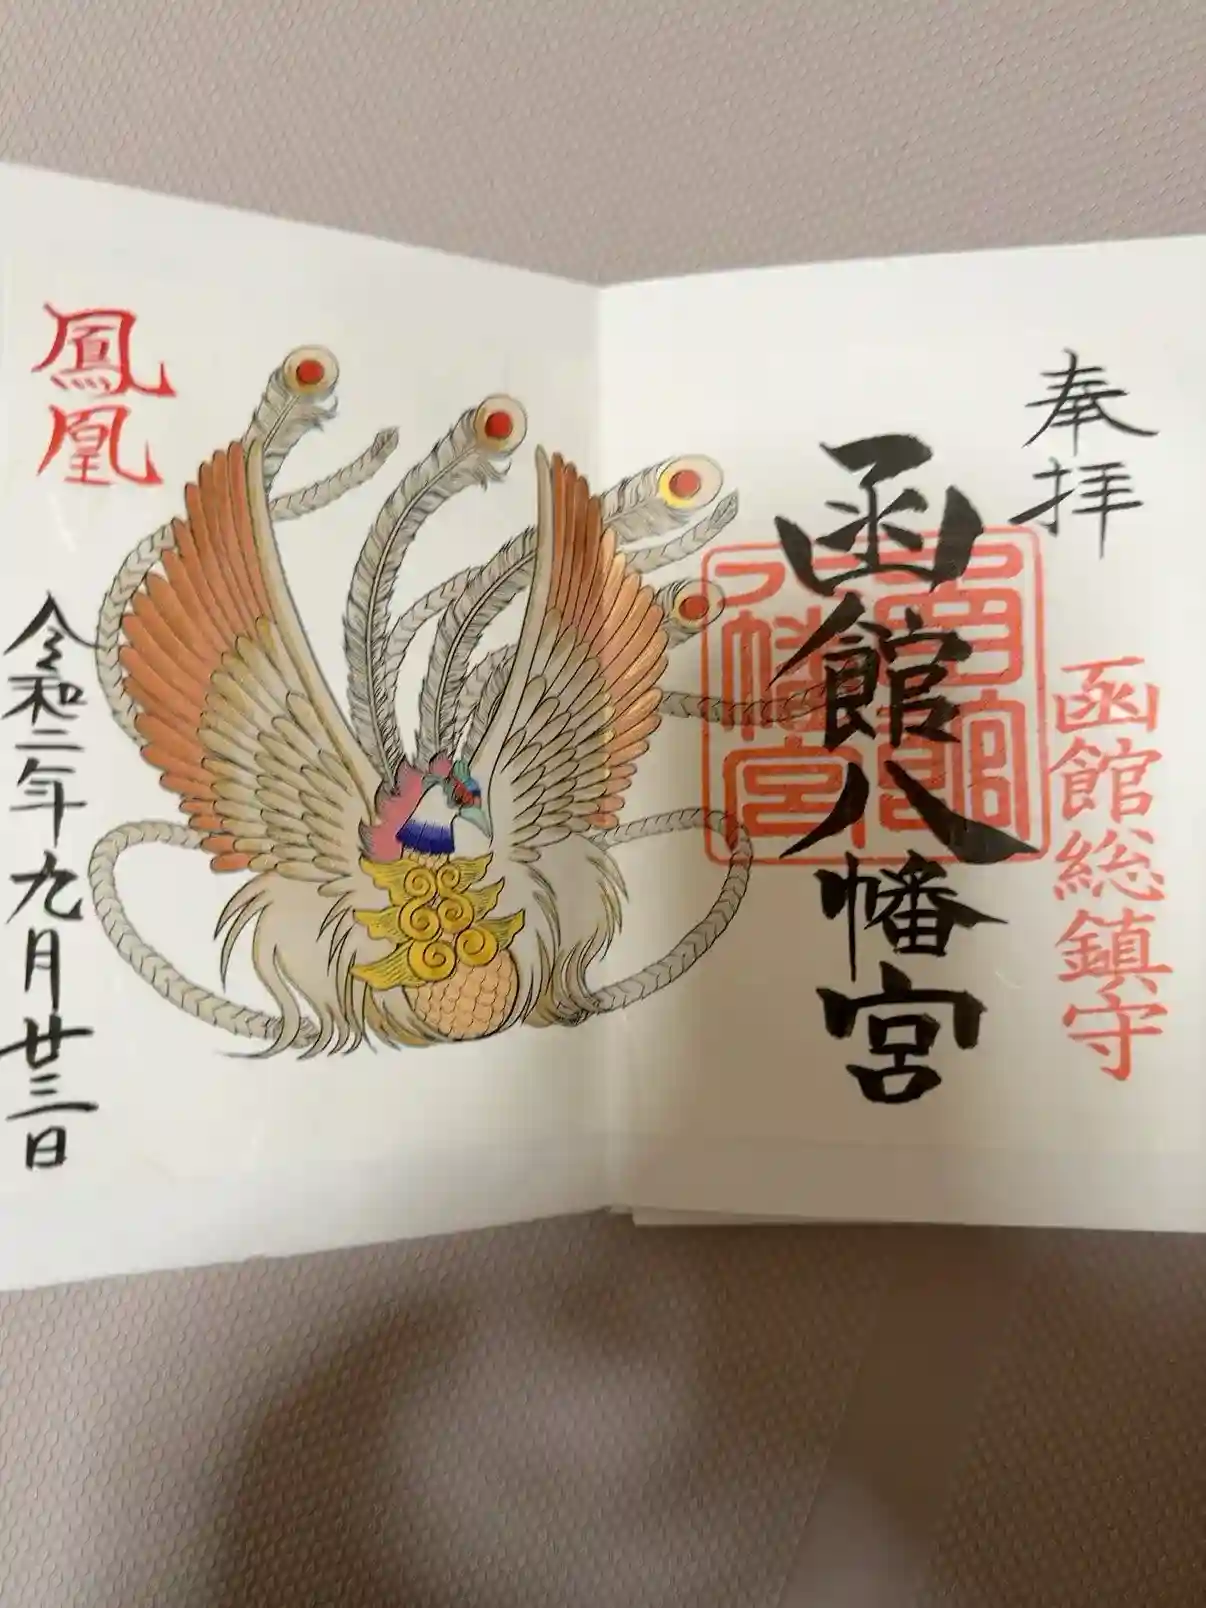 奉拝
函館総鎮守
函館八幡宮
函館
八幡宮
鳳凰
令和二年九月廿三日